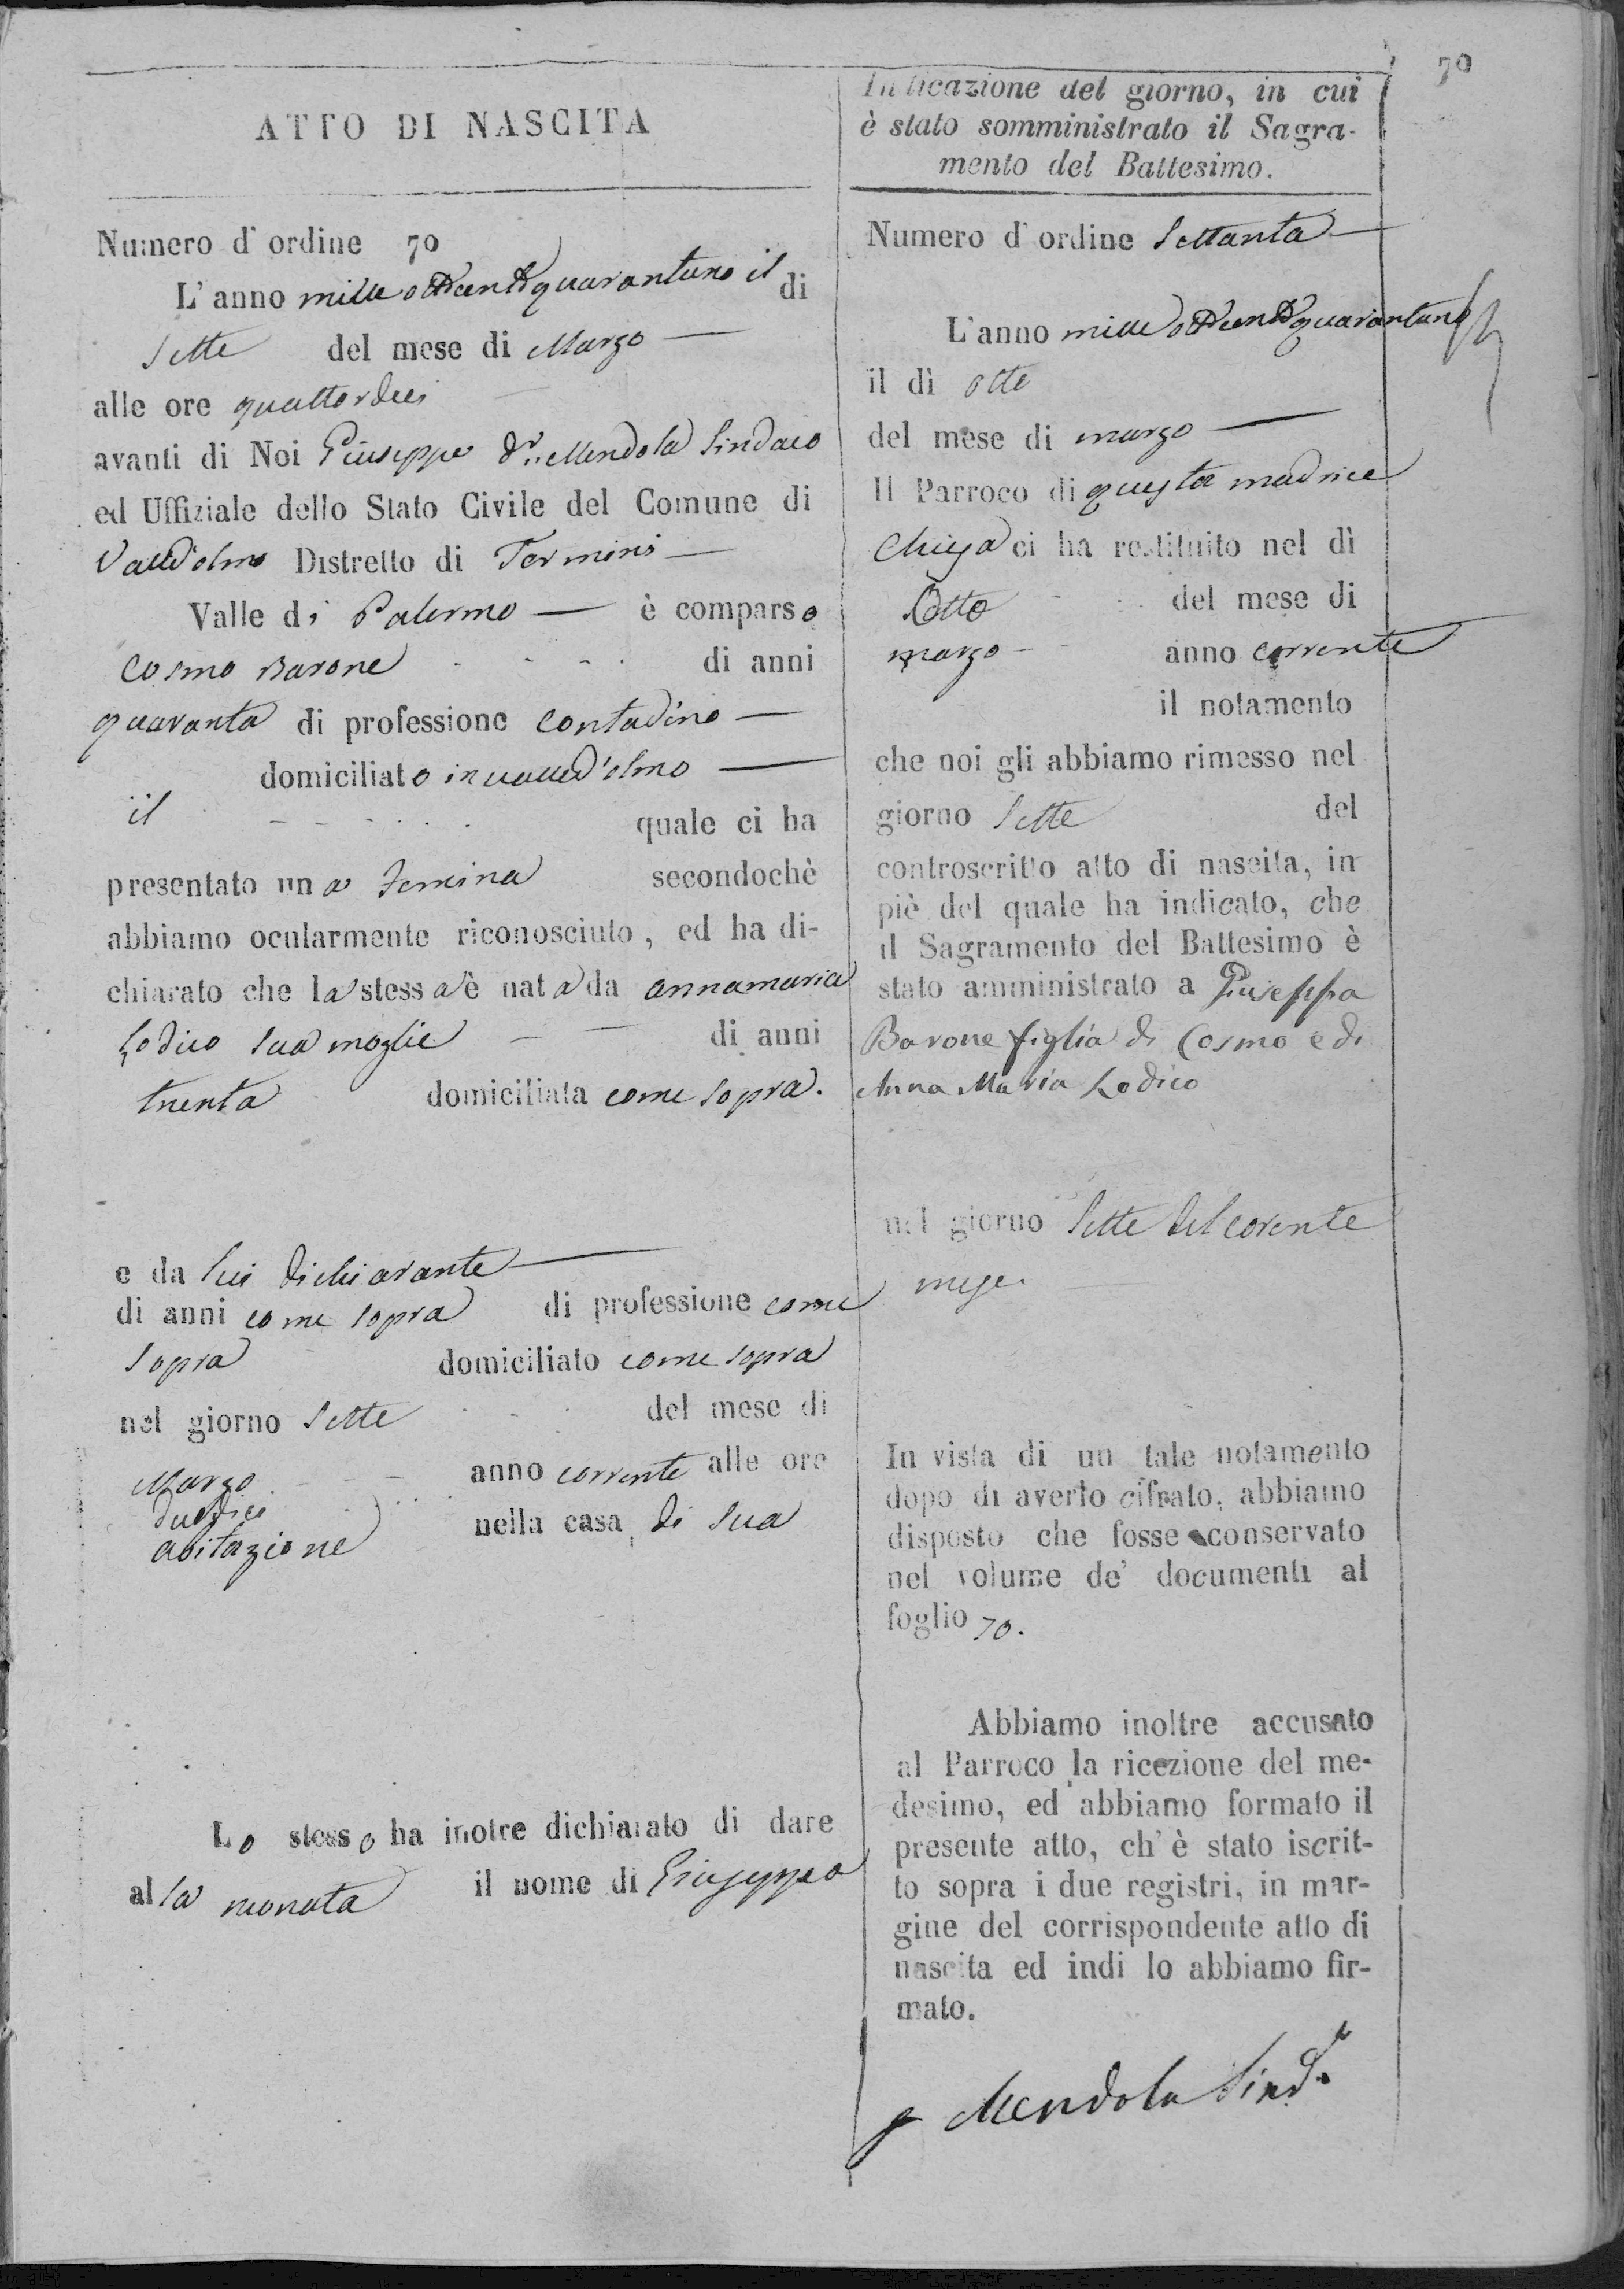 70
ATTO DI NASCITA
Numero d'ordine 70
L'anno mille ottocento quarantuno il di
Sette del mese di Marzo
alle ore quattordici
avanti di Noi Giuseppe Dr. Mendola Sindaco
ed Uffiziale dello Stato Civile del Comune di
Valled'olmo Distretto di Termini
Valle di Palermo è comparso
Cosmo Barone di anni
quaranta di professione Contadino
domiciliato in valled'olmo
il quale ci ha
presentato una Femina secondochè
abbiamo ocularmente riconosciuto, ed ha di-
chiarato che la stessa è nata da annamaria
Lodico sua moglie di anni
trenta domiciliata come sopra.
e da lui dichiarante
di anni come sopra di professione come
sopra domiciliato come sopra
nel giorno Sette del mese di
Marzo anno corrente alle ore
duodici nella casa di sua
abitazione
Lo stesso ha inoltre dichiarato di dare
alla neonata il nome di Giuseppa
Indicazione del giorno, in cui
è stato somministrato il Sagra-
mento del Battesimo.
Numero d'ordine Settanta
L'anno mille ottocento quarantuno
il dì otto
del mese di marzo
Il Parroco di questa madrice
Chiesa ci ha restituito nel dì
Otto del mese di
marzo anno corrente
il notamento
che noi gli abbiamo rimesso nel
giorno Sette del
controscritto atto di nascita, in
piè del quale ha indicato, che
il Sagramento del Battesimo è
stato amministrato a Giuseppa
Barone figlia di Cosmo e di
Anna Maria Lodico
nel giorno Sette del corente
mese.
In vista di un tale notamento
dopo di averlo cifrato, abbiamo
disposto che fosse conservato
nel volume de' documenti al
foglio 70.
Abbiamo inoltre accusato
al Parroco la ricezione del me-
desimo, ed abbiamo formato il
presente atto, ch' è stato iscrit-
to sopra i due registri, in mar-
gine del corrispondente atto di
nascita ed indi lo abbiamo fir-
mato.
G Mendola Sind.o